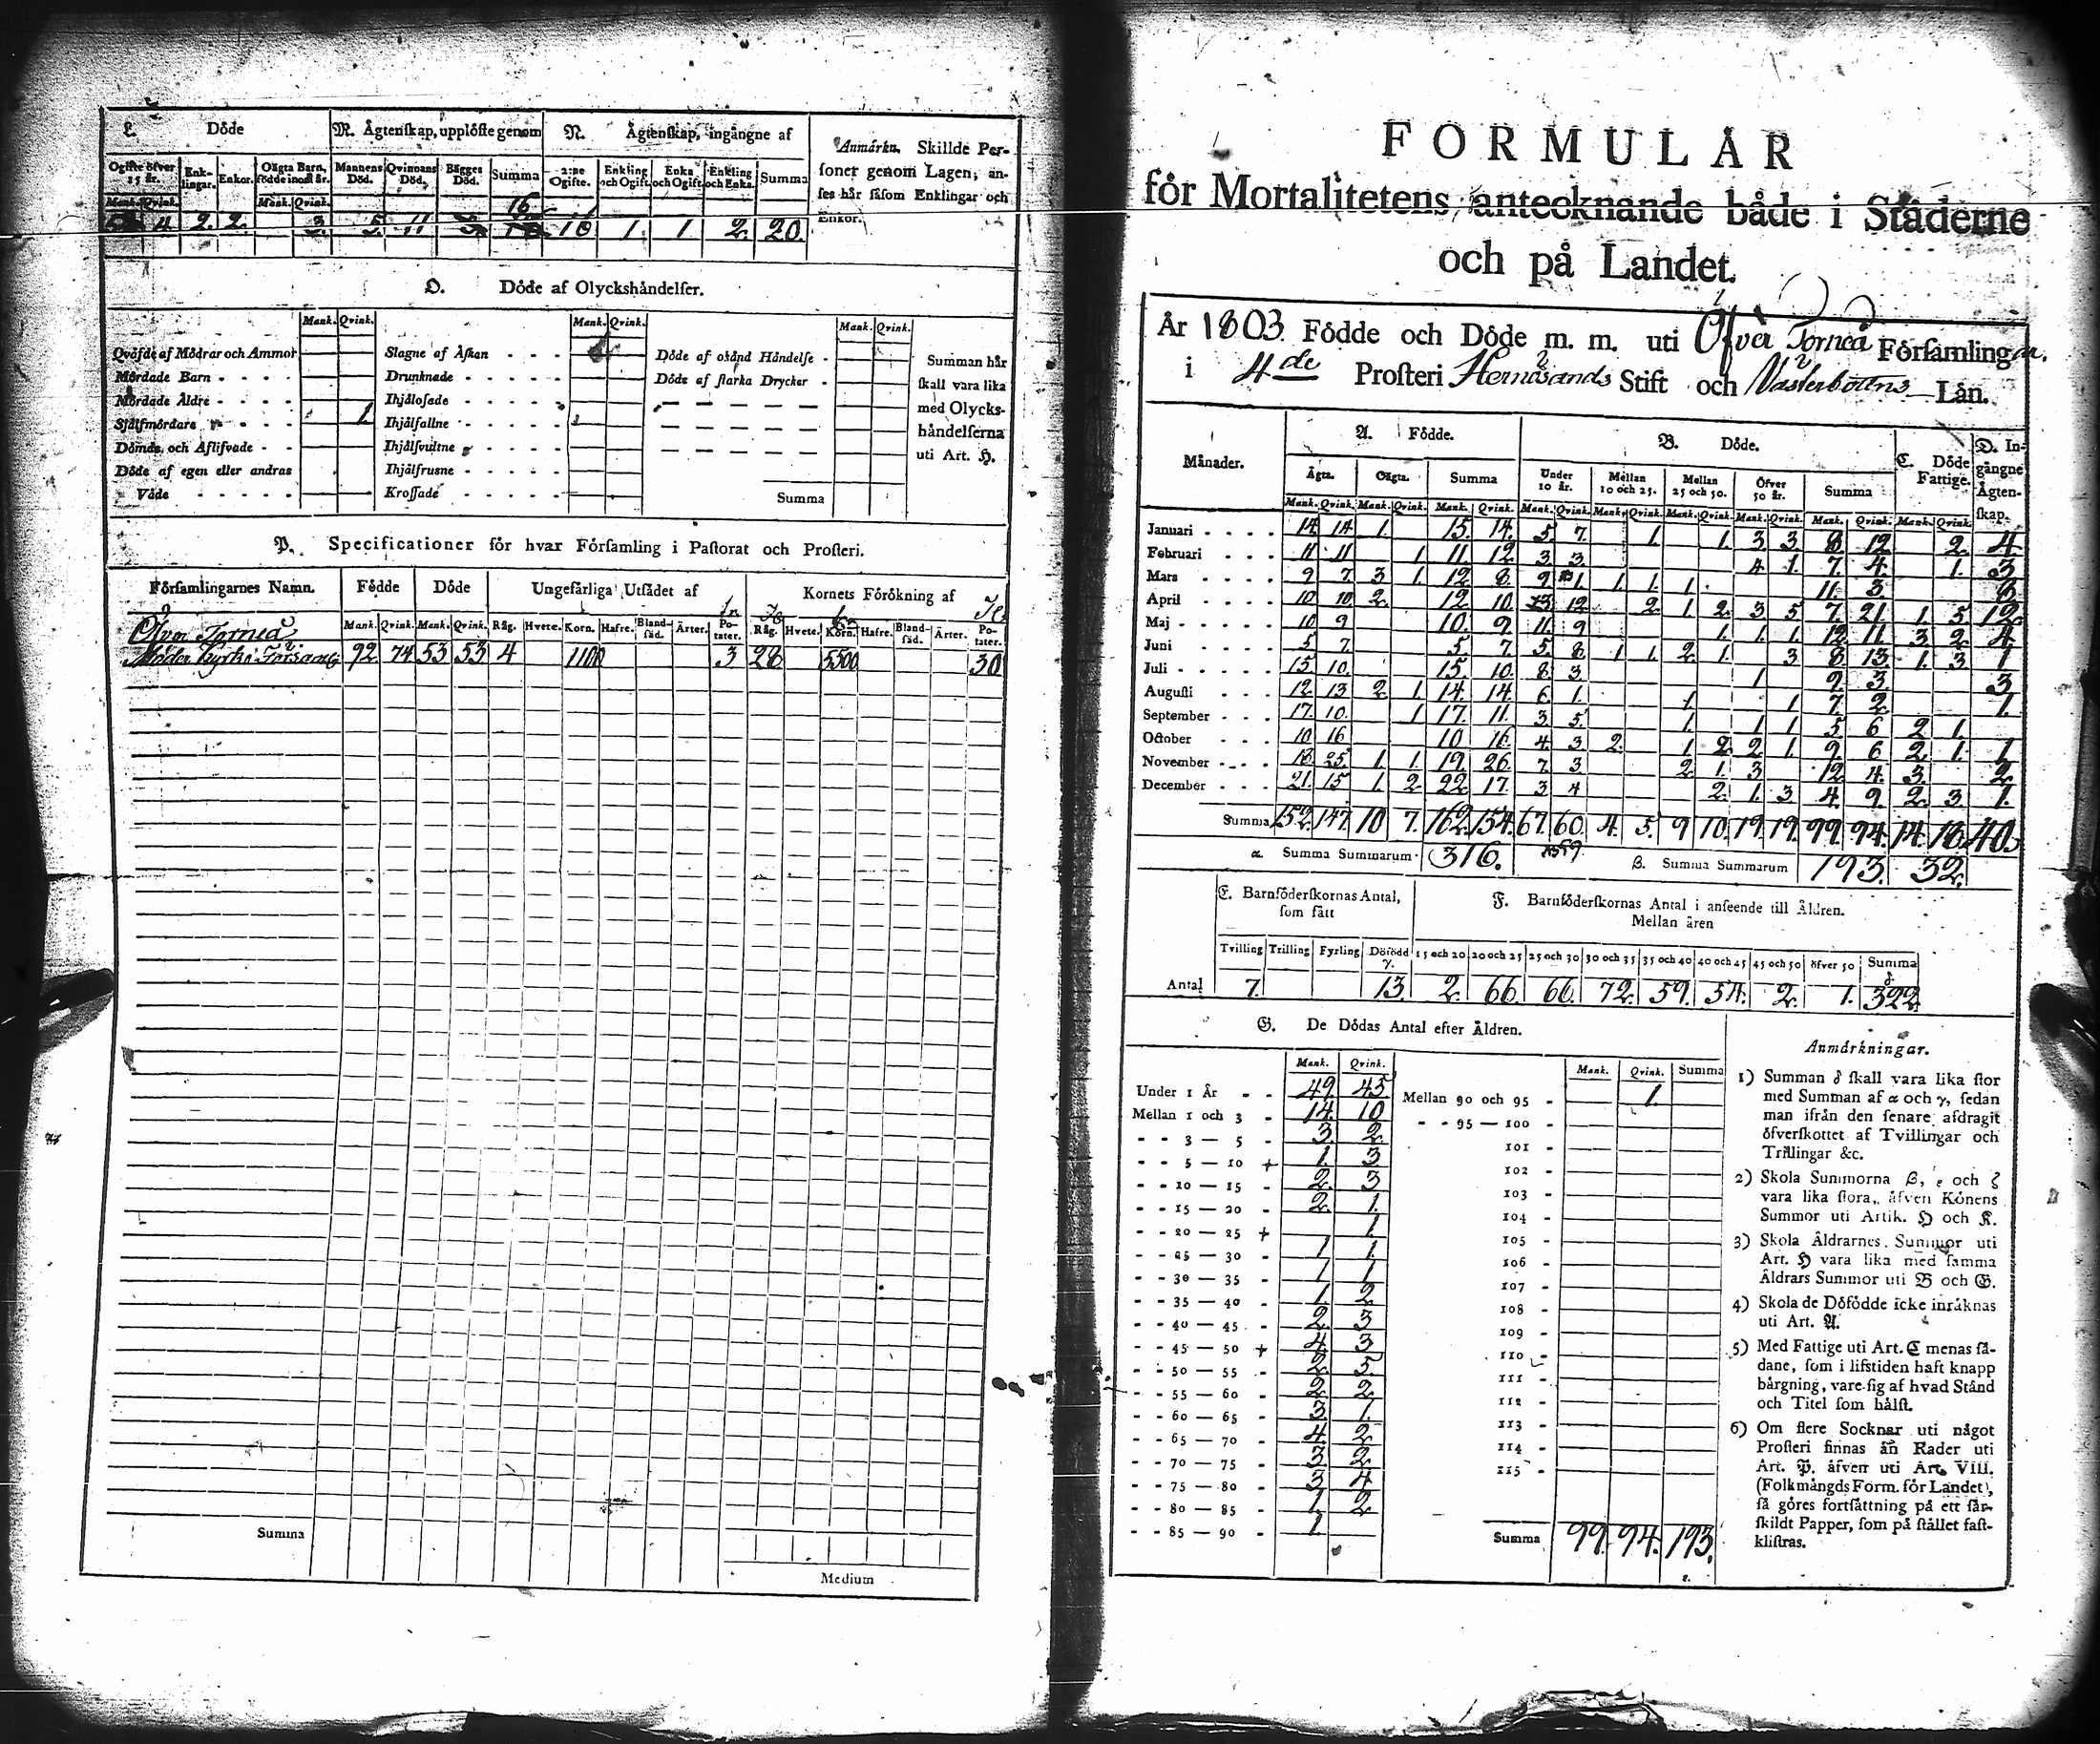 L. Döde
M. Ägtenskap, upplöste genom
N. Ägtenskap, ingångne af
Anmärkn. Skillde Per-
soner genom Lagen, an-
ses här såsom Enklingar och
Enkor.
Ogifte öfver 15 år. Enk-lingar. Enkor. Oägta Barn, födde inom år. Mannens Död. Qvinnans Död. Bägges Död. Summa 2:ne Ogifte. Enkling och Ogift. Enka och Ogift. Enkling och Enka. Summa
Mank. Qvink. Mank. Qvink. 16
4. 2. 2. 3. 5. 11 16 1. 1 2. 20.
O. Döde af Olyckshändelser.
Mank. Qvink. Mank. Qvink. Mank. Qvink.
Qväfde af Mödrar och Ammor
Mördade Barn
Mördade Äldre
Självmördare 1.
Dömde och Aflifvade
Döde af egen eller andras
Våde
Slagne af Åskan
Drunknade
Ihjälosade
Ihjälfallne
Ihjälsvultne
Ihjälfrusne
Krossade
Döde af okänd Händelse
Döde af starka Drycker
Summa
Summan här
skall vara lika
med Olycks-
händelserna
uti Art. H.
P. Specificationer för hvar Församling i Pastorat och Prosteri.
Församlingarnes Namn. Födde Döde Ungefärliga Utsådet af Kornets Förökning af
Mank. Qvink. Mank. Qvink. Råg. Hvete. Korn. Hafre. Bland-säd. Ärter. Po-tater. Råg. Hvete. Korn. Hafre. Bland-säd. Ärter. Po-tater.
Öfver Torneå
Moder Kyrko Församl. 92 74 53 53 4 1100 3 28 5500 30
Summa
Medium
FORMULÄR
för Mortalitetens antecknande både i Städerne
och på Landet.
År 1803 Födde och Döde m. m. uti Öfver Torneå Församlingar.
i 4de Prosteri Hernösands Stift och Västerbottns Län.
Månader. A. Födde. B. Döde. C. Döde Fattige. D. In-gångne Ägten-skap.
Ägta. Oägta. Summa Under 10 år. Mellan 10 och 25. Mellan 25 och 50. Öfver 50 år. Summa
Mank. Qvink. Mank. Qvink. Mank. Qvink. Mank. Qvink. Mank. Qvink. Mank. Qvink. Mank. Qvink. Mank. Qvink. Mank. Qvink.
Januari 14 14 1. 15. 14. 5 7. 1. 1. 3 3 8. 12 2. 4
Februari 11 11 1 11. 12 3 3 4 1. 7. 4. 1. 3
Mars 9 7. 3 1. 12 8. 9 1. 1. 1. 1. 11. 3 8
April 10 10 2. 12 10. 12 2 1 2. 3 5 7. 21. 1. 5 12
Maj 10 9 10. 9. 11 9 1. 1. 1 12 11 3 2. 4
Juni 5 7. 5. 7. 5 8. 1 1. 2. 1. 3 8 13. 1. 3 1
Juli 15 10. 15. 10. 8 3 1 9. 3 3
Augusti 12 13 2 1. 14. 14. 6 1. 1 1 7. 2 1.
September 17. 10. 1 17. 11. 3 5. 1. 1 1 5 6 2 1.
October 10 16 10 16. 4 3 2. 1. 2. 2. 1. 9. 6 2. 1. 1
November 18 25. 1. 1. 19. 26. 7 3 2. 1. 3 12 4. 3. 2
December 21. 15 1. 2 22 17. 3 4 2. 1. 3 4 9. 2. 3 1.
Summa 152. 147. 10 7. 162. 154. 67. 60. 4. 5. 9 10. 19. 19. 99. 94. 14. 18. 40.
α. Summa Summarum 316. β. Summa Summarum 193. 32.
E. Barnföderskornas Antal, som fått
F. Barnföderskornas Antal i anseende till Åldren.
Mellan åren
Tvilling Trilling Fyrling Döfödd γ. 15 och 20 20 och 25 25 och 30 30 och 35 35 och 40 40 och 45 45 och 50 öfver 50 Summa δ
Antal 7. 13. 2. 66. 66. 72. 59. 54. 2. 1. 322.
G. De Dödas Antal efter Åldren.
Mank. Qvink. Mank. Qvink. Summa
Under 1 År 49. 45.
Mellan 1 och 3 14. 10
3 — 5 3. 2
5 — 10 + 1. 3
10 — 15 2. 3
15 — 20 2. 1.
20 — 25 + 1.
25 — 30 1 1.
30 — 35 1 1
35 — 40 1. 2
40 — 45 2. 3
45 — 50 + 4. 3
50 — 55 2. 5.
55 — 60 2. 2
60 — 65 3 1.
65 — 70 4. 2
70 — 75 3 2
75 — 80 3 4
80 — 85 1. 2
85 — 90 1
Mellan 90 och 95 1.
95 — 100
101
102
103
104
105
106
107
108
109
110
111
112
113
114
115
Summa 99. 94. 193.
ε.
Anmärkningar.
1) Summan δ skall vara lika stor
med Summan af α och γ, sedan
man ifrån den senare afdragit
öfverskottet af Tvillingar och
Trillingar &c.
2) Skola Summorna β, ε och ζ
vara lika stora, äfven Könens
Summor uti Artik. H och K.
3) Skola Åldrarnes Summor uti
Art. H vara lika med samma
Åldrars Summor uti B och G.
4) Skola de Döfödde icke inräknas
uti Art. A.
5) Med Fattige uti Art. C menas så-
dane, som i lifstiden haft knapp
bärgning, vare sig af hvad Stånd
och Titel som hälst.
6) Om flere Socknar uti något
Prosteri finnas än Rader uti
Art. P. äfven uti Art. VIII.
(Folkmängds Form. för Landet),
så göres fortsättning på ett sär-
skildt Papper, som på stället fast-
klistras.